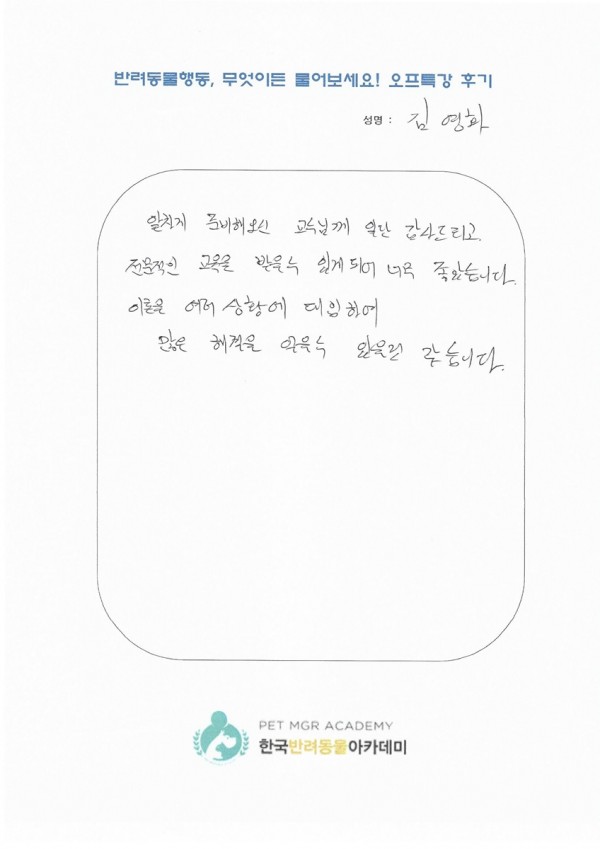 반려동물행동, 무엇이든 물어보세요! 오프특강 후기
성명 : 김 영화
알차게 준비해오신 교수님께 일단 감사드리고
전문적인 교육을 받을수 있게되어 너무 좋았습니다.
이론을 여러 상황에 대입하여
많은 해결을 얻을수 있을것 같습니다.
PET MGR ACADEMY
한국반려동물아카데미